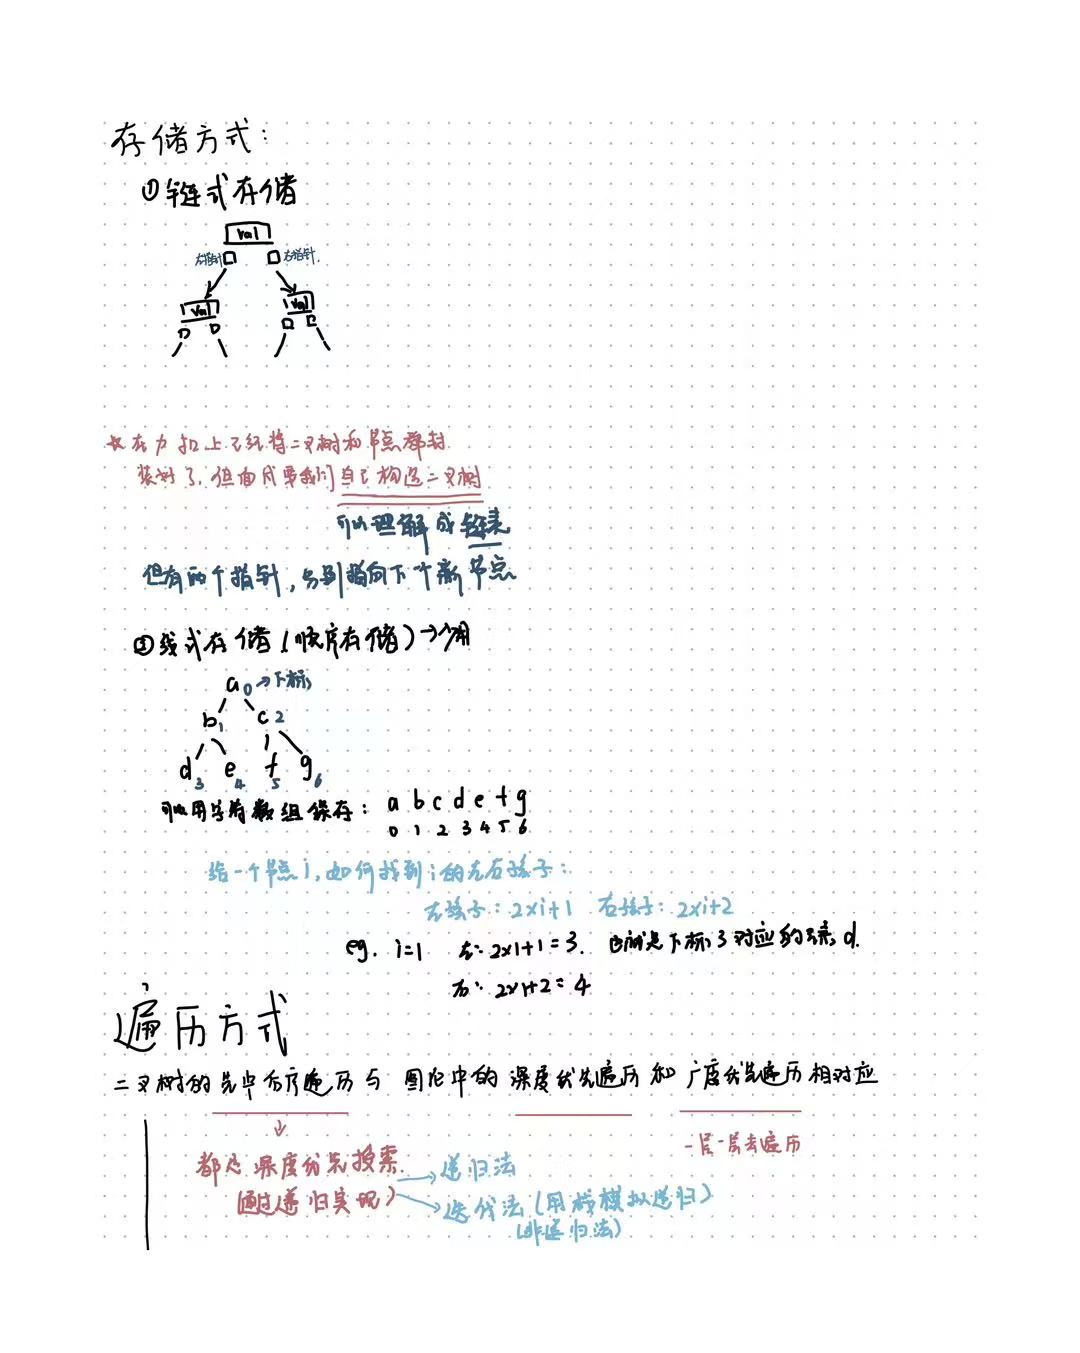 存储方式:
①链式存储
val
左指针 右指针.
val val
★在力扣上已经将二叉树和节点都封
装好了, 但面试要我们自己构造二叉树
可以理解成链表
但有两个指针, 分别指向下个新节点
②线式存储(顺序存储)→少用
a 0→下标
b 1 c 2
d 3 e 4 f 5 g 6
可以用字符数组保存: a b c d e f g
0 1 2 3 4 5 6
给一个节点i, 如何找到i的左右孩子:
左孩子: 2×i+1 右孩子: 2×i+2
eg. i=1 左: 2×1+1=3. 也就是下标3对应的元素d.
右: 2×1+2=4
遍历方式
二叉树的先中后序遍历与图论中的深度优先遍历和广度优先遍历相对应
一层一层去遍历
都是深度优先搜索. →递归法
(通过递归实现) →迭代法(用栈模拟递归)
(非递归法)